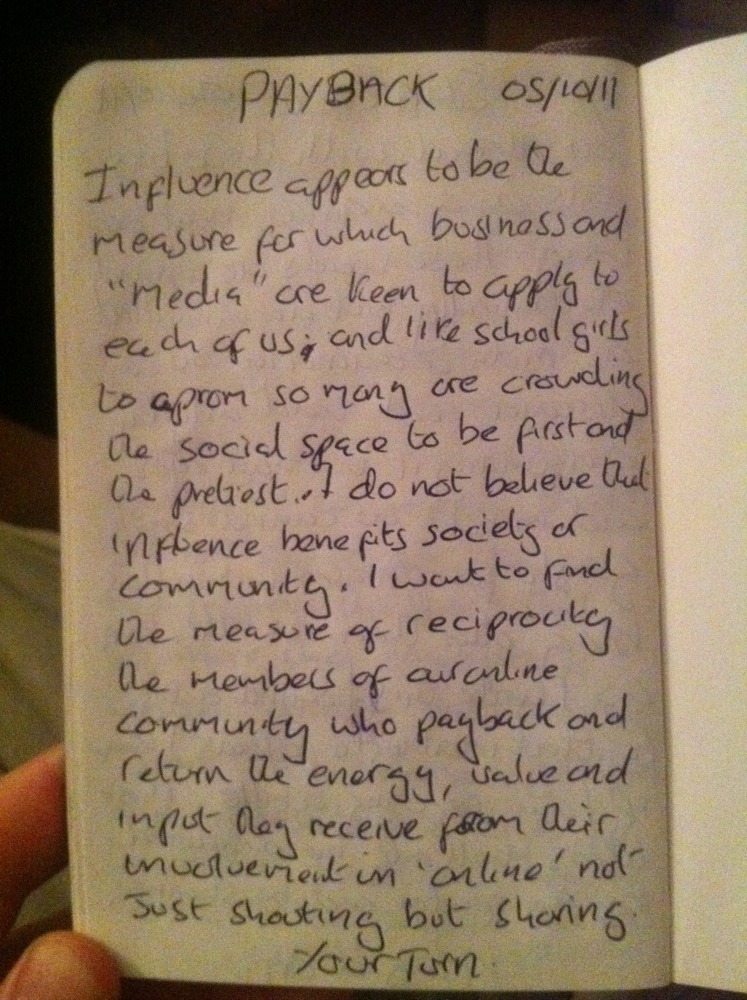 PAYBACK 05/10/11
Influence appears to be the
measure for which business and
"Media" are keen to apply to
each of us; and like school girls
to a prom so many are crowding
the social space to be first and
the pretiest. I do not believe that
influence benefits society or
community. I want to find
the measure of reciprocity
the members of our online
community who payback and
return the energy, value and
input they receive from their
involvement in 'online' not
Just shouting but sharing.
Your Turn.